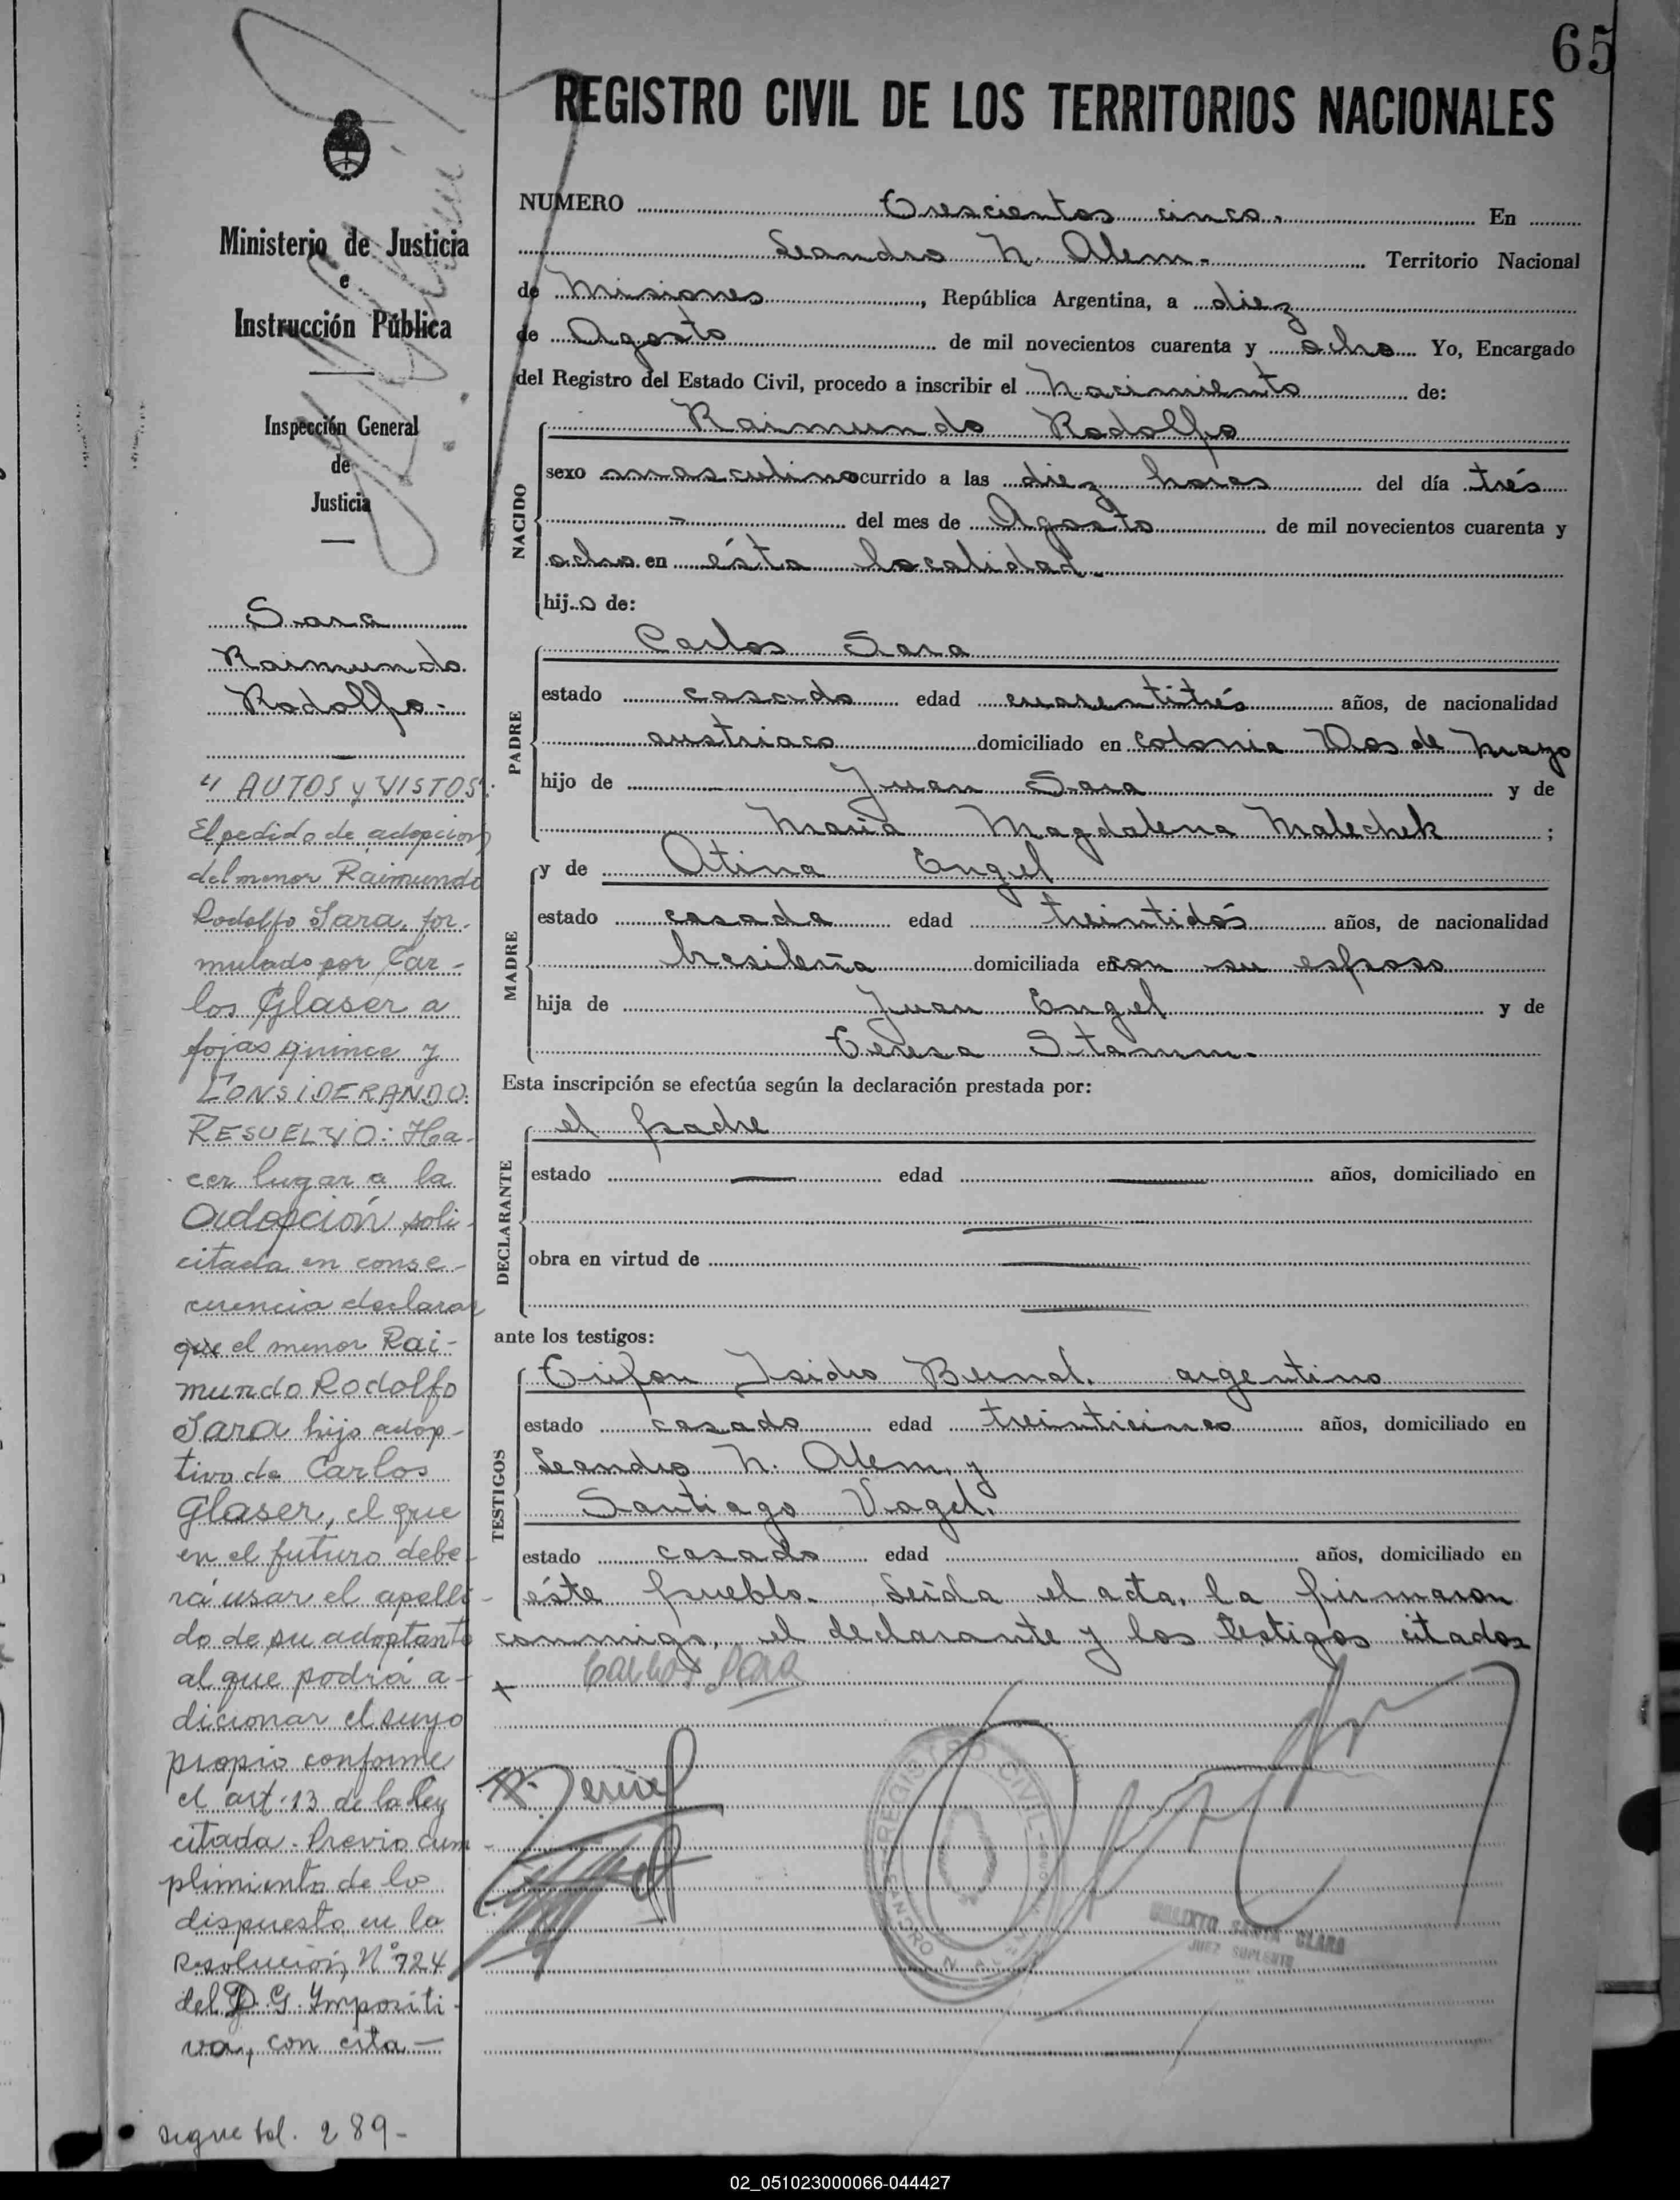 65
REGISTRO CIVIL DE LOS TERRITORIOS NACIONALES
Ministerio de Justicia
e
Instrucción Pública
Inspección General
de
Justicia
Sara
Raimundo
Rodolfo.-
"AUTOS y VISTOS":
El pedido de adopcion
del menor Raimundo
Rodolfo Sara, for-
mulado por Car-
los Glaser a
fojas quince y
CONSIDERANDO:
RESUELVO: Ha-
cer lugar a la
Adopción soli-
citada en conse-
cuencia declarar
que el menor Rai-
mundo Rodolfo
Sara hijo adop-
tivo de Carlos
Glaser, el que
en el futuro debe-
rá usar el apelli-
do de su adoptante
al que podrá a-
dicionar el suyo
propio conforme
el art. 13 de la ley
citada. Previo cum-
plimiento de lo
dispuesto en la
Resolución N° 724
del D. G. Impositi-
va, con cita-
sigue fol. 289-
NUMERO Trescientos cinco. En
Leandro N. Alem.- Territorio Nacional
de Misiones, República Argentina, a diez
de Agosto de mil novecientos cuarenta y ocho Yo, Encargado
del Registro del Estado Civil, procedo a inscribir el Nacimiento de:
NACIDO
Raimundo Rodolfo
sexo masculino ocurrido a las diez horas del día trés
- del mes de Agosto de mil novecientos cuarenta y
ocho en ésta localidad.
hijo de:
PADRE
Carlos Sara
estado casado edad cuarentitrés años, de nacionalidad
austriaco domiciliado en colonia Dos de Mayo
hijo de Juan Sara y de
Maria Magdalena Malechek;
MADRE
y de Otina Engel
estado casada edad treintidós años, de nacionalidad
brasileña domiciliada en con su esposo
hija de Juan Engel y de
Teresa Stamm.
Esta inscripción se efectúa según la declaración prestada por:
DECLARANTE
el padre
estado — edad — años, domiciliado en
—
obra en virtud de —
—
ante los testigos:
TESTIGOS
Trifon Isidro Bernal. argentino
estado casado edad treinticinco años, domiciliado en
Leandro N. Alem, y
Santiago Vogel.
estado casado edad años, domiciliado en
éste pueblo. Leída el acta, la firmaron
conmigo, el declarante y los testigos citados
Carlos Sara
REGISTRO CIVIL
LEANDRO N. ALEM
CALIXTO SANTA CLARA
JUEZ SUPLENTE
02_051023000066-044427